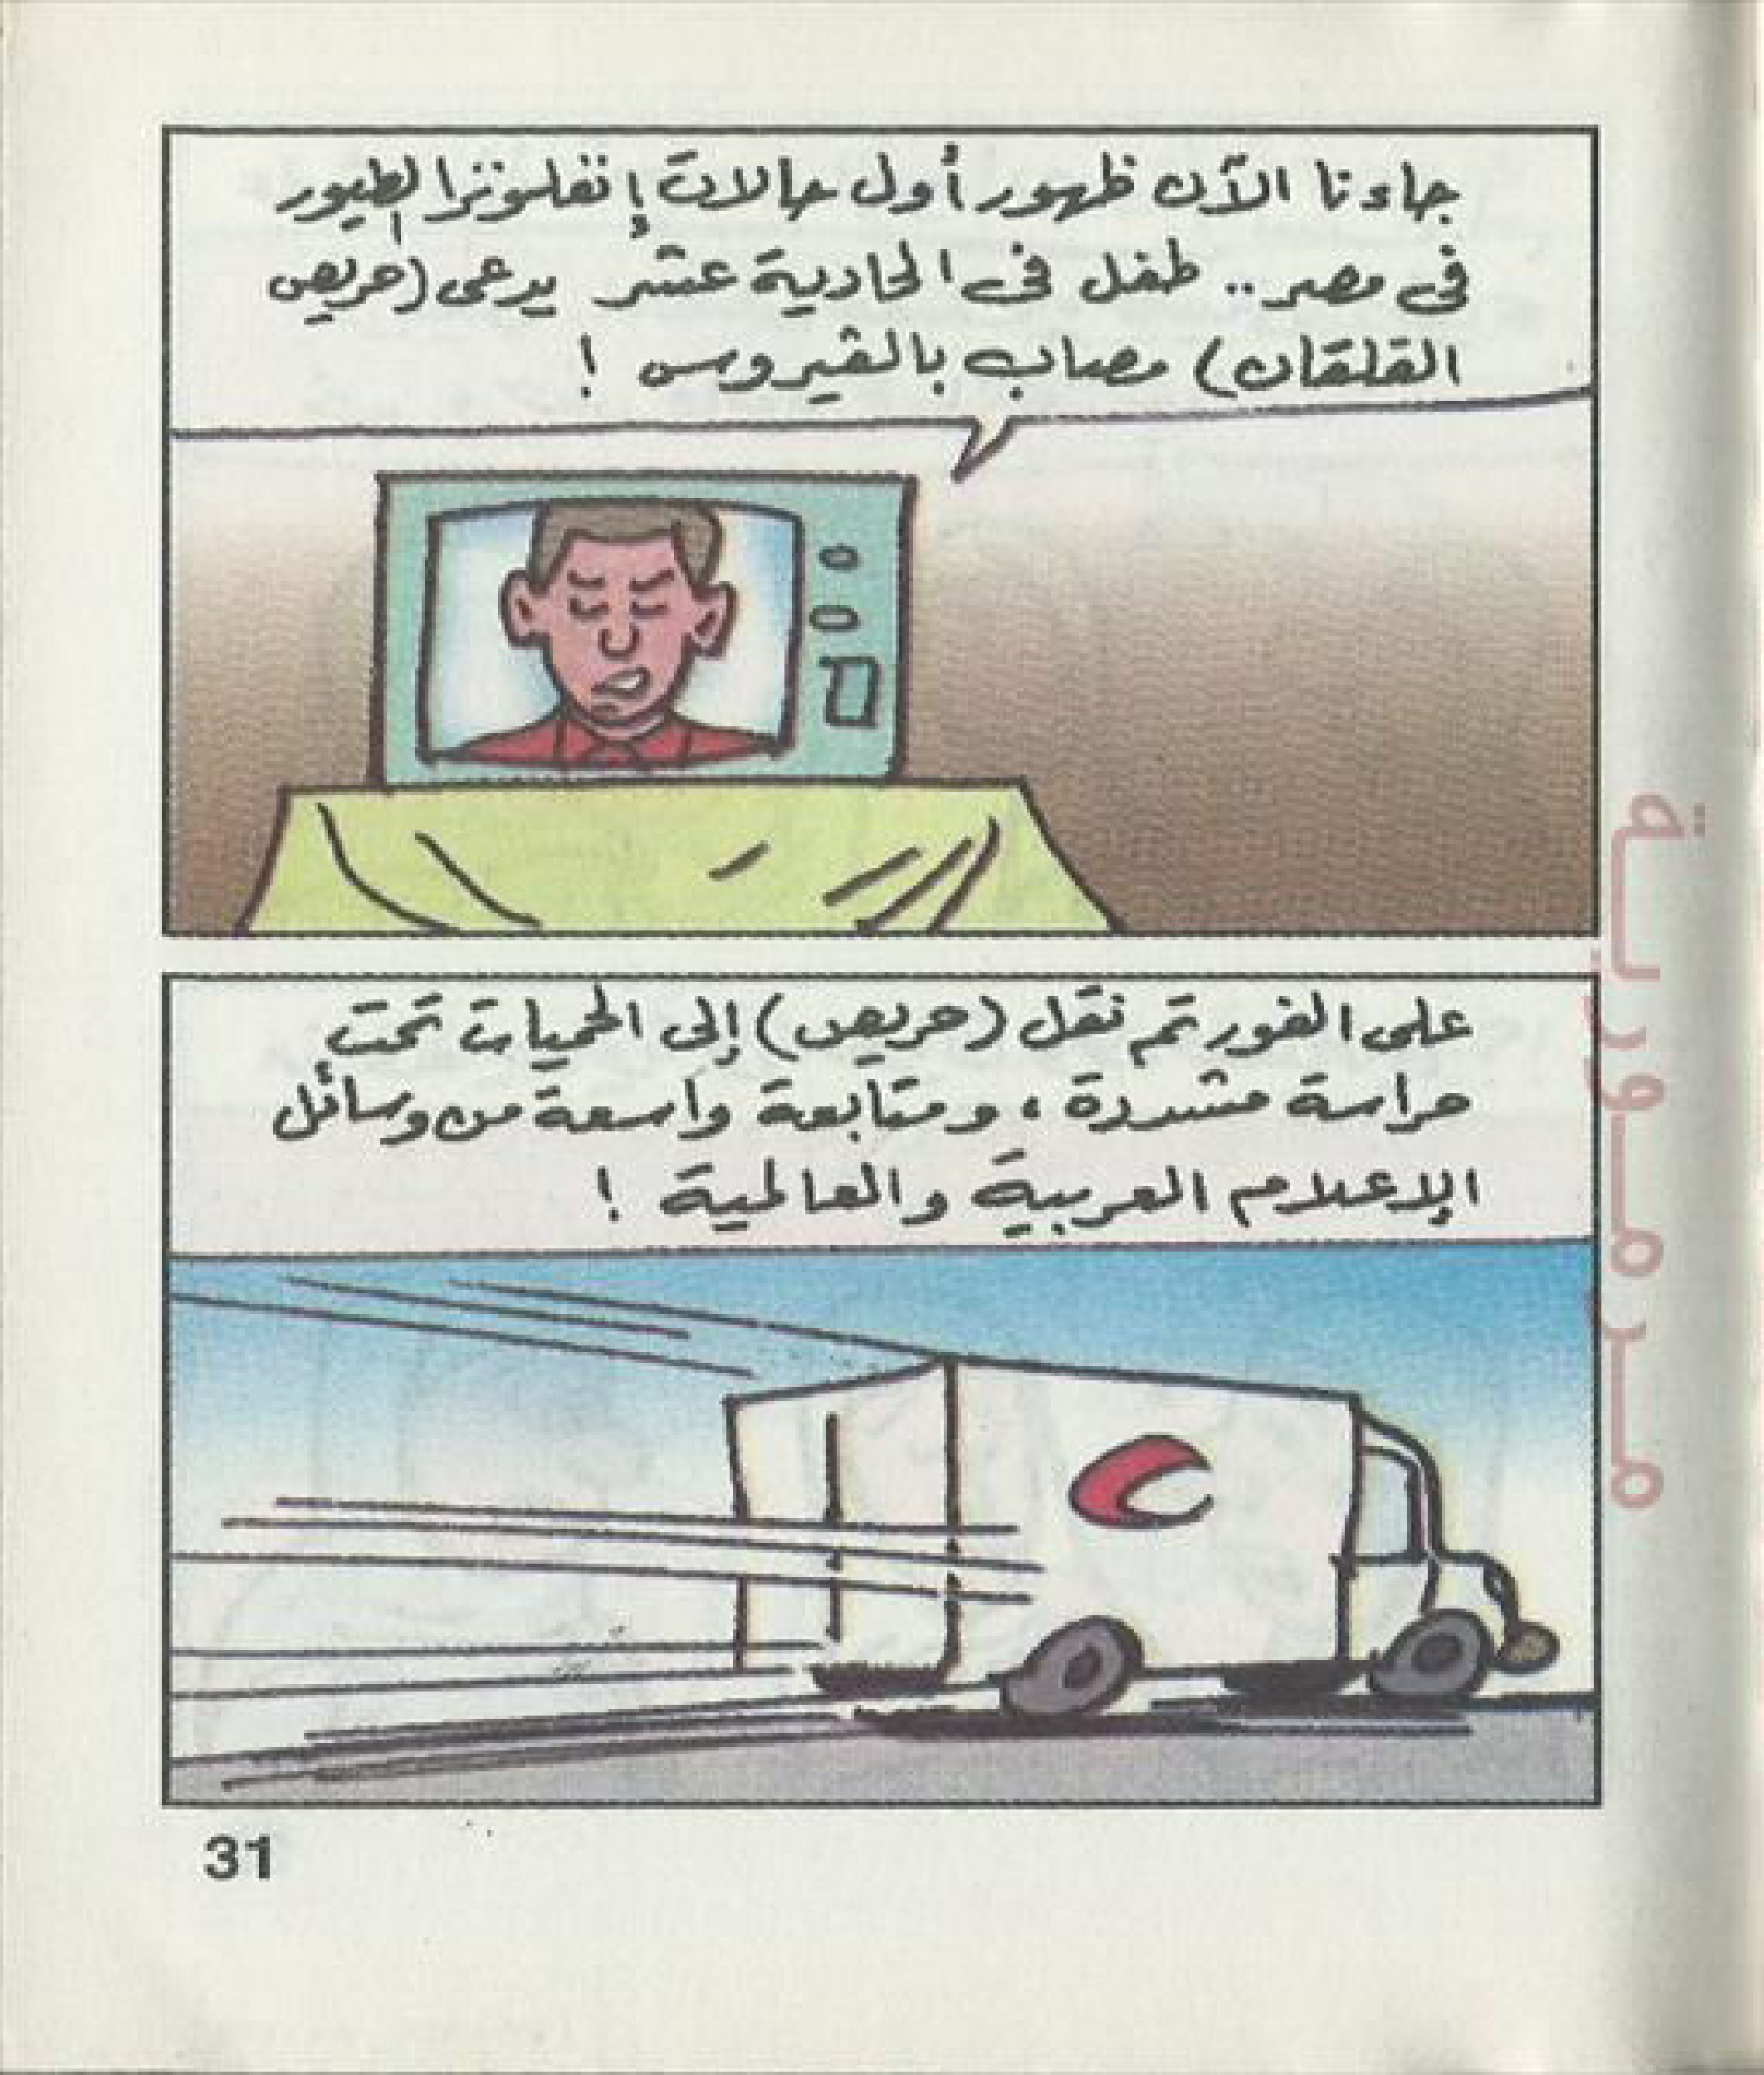 جاءنا الآن ظهور أول حالات إنفلونزا الطيور
فى مصر.. طفل فى الحادية عشر يدعى (حريص
القلقان) مصاب بالفيروس !
على الفور تم نقل (حريص) إلى الحميات تحت
حراسة مشددة، ومتابعة واسعة من وسائل
الإعلام العربية والعالمية !
مدمورية
31